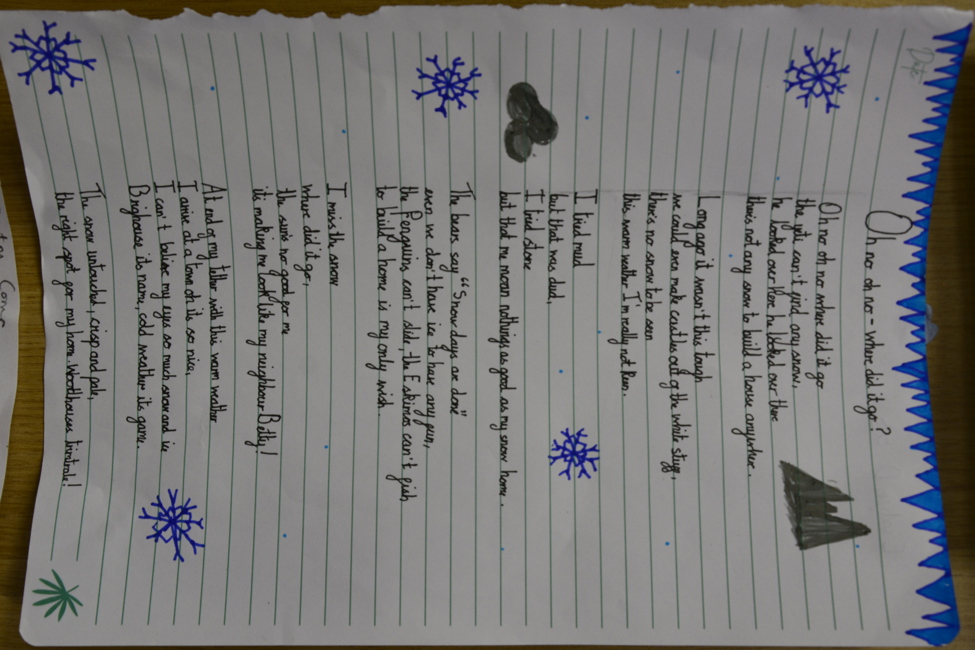 Date
Oh no oh no - where did it go?
Oh no oh no where did it go
the yeti can't find any snow.
he looked over here he looked over there
theirs not any snow to build a house anywhere.
Long ago it wasn't this tough
we could even make castles out of the white stuff,
there's no snow to be seen
this warm weather I'm really not keen.
I tried mud
but that was dud,
I tried stone
but that me moan nothing as good as my snow home.
The bears say "Snow days are done"
even we don't have ice to have any fun,
the Penguins can't slide, the Eskimos can't fish
to build a home is my only wish.
I miss the snow
where did it go,
the sun's no good for me
it's making me look like my neighbour Betty!
At end of my tether with this warm weather
I arrive at a town oh it's so nice,
I can't belive my eyes so much snow and ice
Brighouse its name, cold weather its game.
The snow untouched, crisp and pale,
the right spot for my home Woodhouse